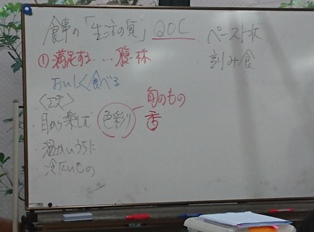 食事の「生活の質」QOL
①満足する…穏
おいしく食べる
〈工夫〉
・目から楽しむ 色彩り
旬のもの
香
・温かいうちに
冷たいもの
ペースト状
刻み食